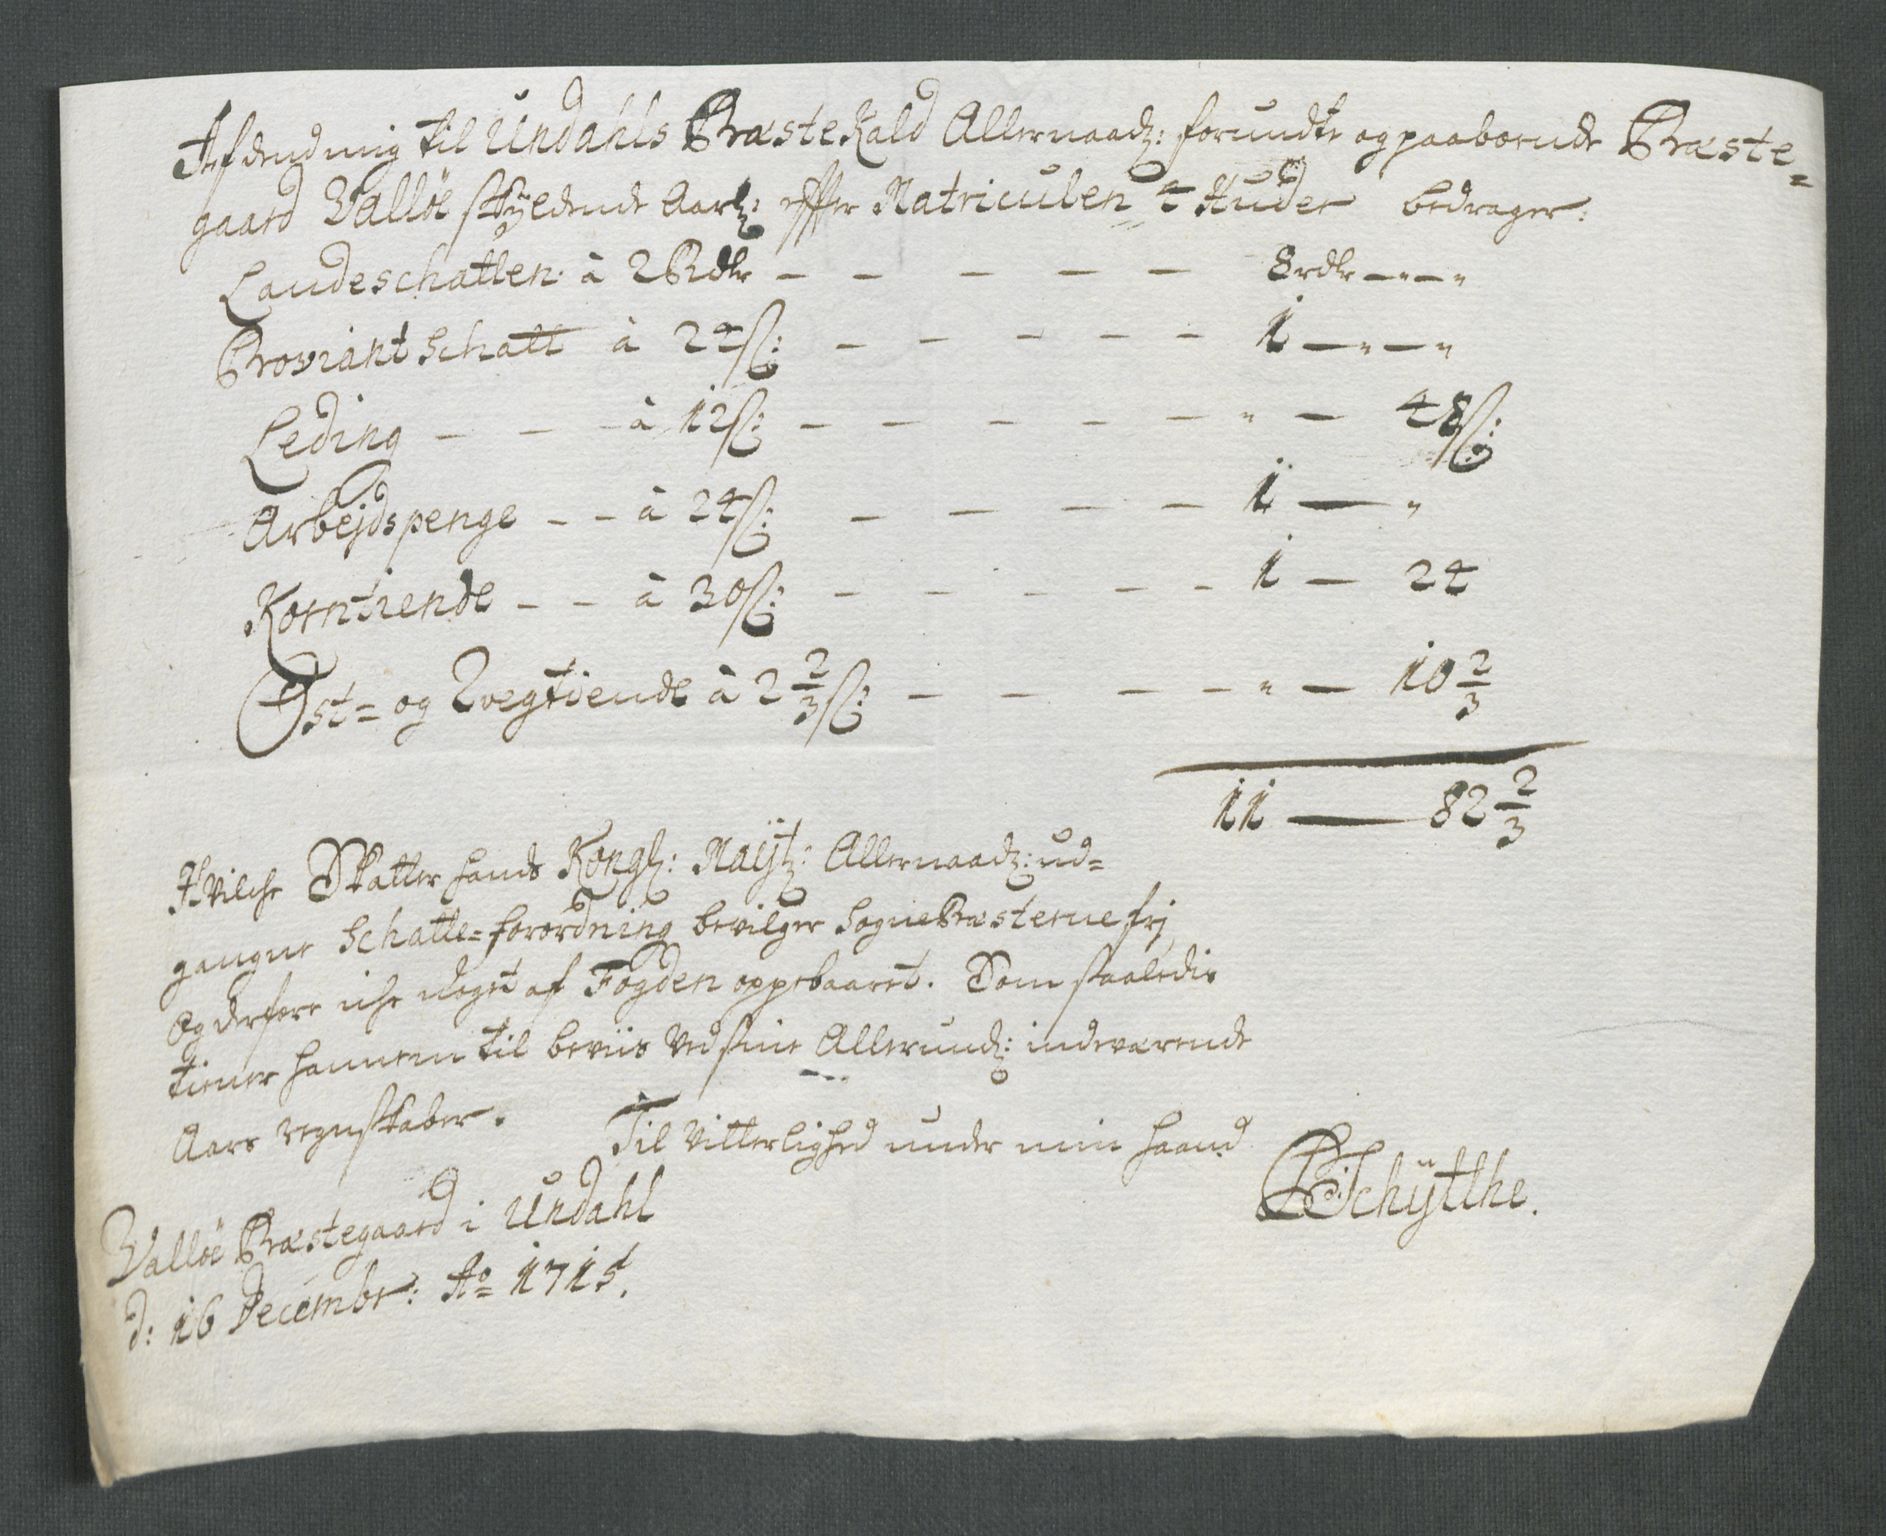 Af dend mig til Undahls Præste Kald Allernaadl: forundte og paaboende Præste=
gaard Valløe skÿldende Aarl: effter Matriculen 4 Huder bedrager:
Landeschatten à 2 Rdlr — — — — — 8 rdlr — „ — „
Proviant Schatt à 24 ß: — — — — — 1 — „ — „
Leding — — — à 12 ß: — — — — — „ — 48 ß:
Arbejdspenge — — à 24 ß: — — — — 1 — „
Korntiende — — à 30 ß: — — — — — 1 — 24
Ost= og Qvegtiende à 2 2/3 ß: — — — — „ — 10 2/3
11 — 82 2/3
Hvilche Skatter hands Kongl: Maÿtz: Allernaadl: ud=
gangne Schatte=forordning bevilger SognePræsterne frj,
og derfore iche noget af Fogden oppebaaret. Som saaledis
tiener hannem til beviis ved sine Allerundl: indeværende
Aars regnskaber.
Til vitterlighed under min haand
PSchÿtthe.
Valløe Præstegaard i Undahl
d: 16 Decembr: Ao 1715.